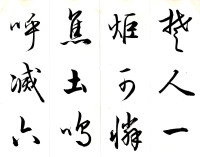 楚人一
炬可憐
焦土嗚
呼滅六